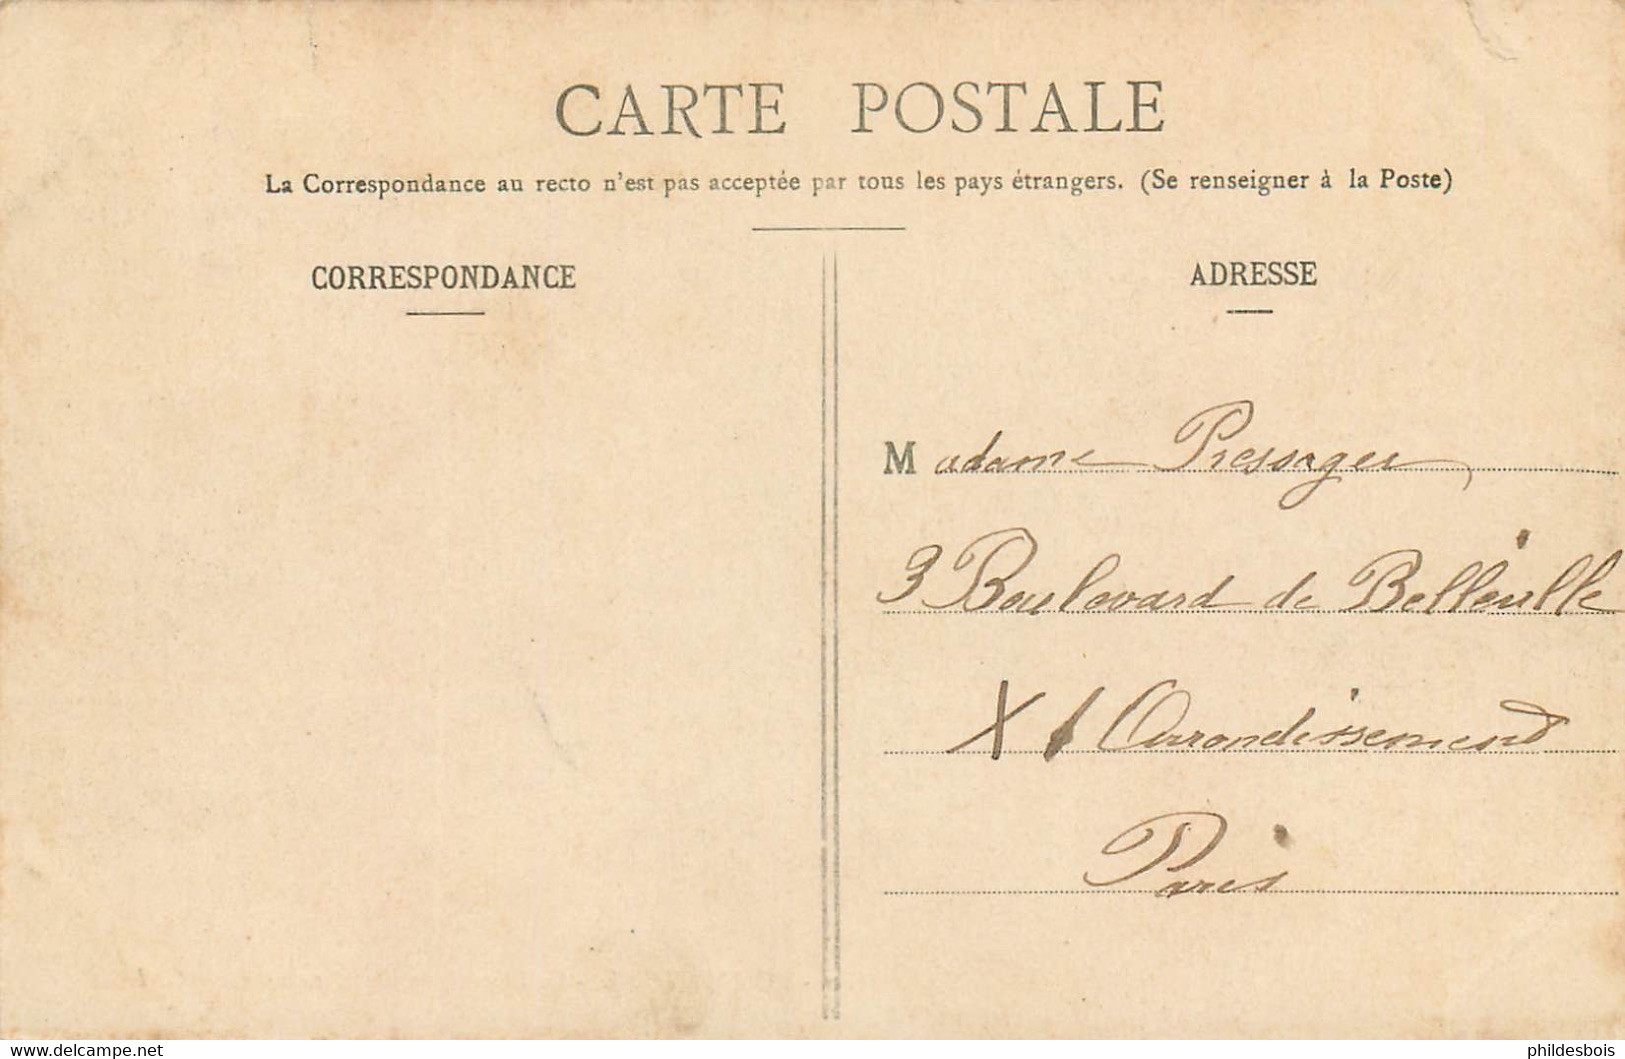 CARTE POSTALE
La Correspondance au recto n'est pas acceptée par tous les pays étrangers. (Se renseigner à la Poste)
CORRESPONDANCE
ADRESSE
Madame Pressager
3 Boulevard de Belleville
X Arrondissement
Paris
www.delcampe.net
phildesbois